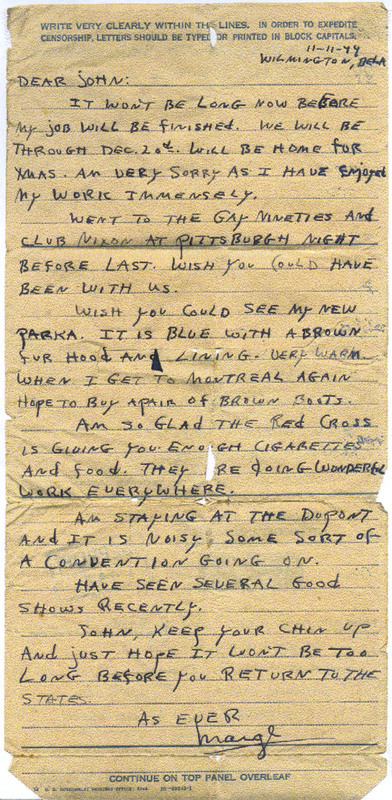 WRITE VERY CLEARLY WITHIN THE LINES. IN ORDER TO EXPEDITE
CENSORSHIP, LETTERS SHOULD BE TYPED OR PRINTED IN BLOCK CAPITALS.
11-11-44
WILMINGTON, DELA
DEAR JOHN:
IT WON'T BE LONG NOW BEFORE
MY JOB WILL BE FINISHED. WE WILL BE
THROUGH DEC. 20th. WILL BE HOME FOR
XMAS. AM VERY SORRY AS I HAVE ENJOYED
MY WORK IMMENSELY.
WENT TO THE GAY NINETIES AND
CLUB NIXON AT PITTSBURGH NIGHT
BEFORE LAST. WISH YOU COULD HAVE
BEEN WITH US.
WISH YOU COULD SEE MY NEW
PARKA. IT IS BLUE WITH A BROWN
FUR HOOD AND LINING. VERY WARM.
WHEN I GET TO MONTREAL AGAIN
HOPE TO BUY A PAIR OF BROWN BOOTS.
AM SO GLAD THE RED CROSS
IS GIVING YOU ENOUGH CIGARETTES
AND FOOD. THEY ARE DOING WONDERFUL
WORK EVERYWHERE.
AM STAYING AT THE DUPONT
AND IT IS NOISY. SOME SORT OF
A CONVENTION GOING ON.
HAVE SEEN SEVERAL GOOD
SHOWS RECENTLY.
JOHN, KEEP YOUR CHIN UP
AND JUST HOPE IT WON'T BE TOO
LONG BEFORE YOU RETURN TO THE
STATES.
AS EVER
Marge
CONTINUE ON TOP PANEL OVERLEAF
U. S. GOVERNMENT PRINTING OFFICE